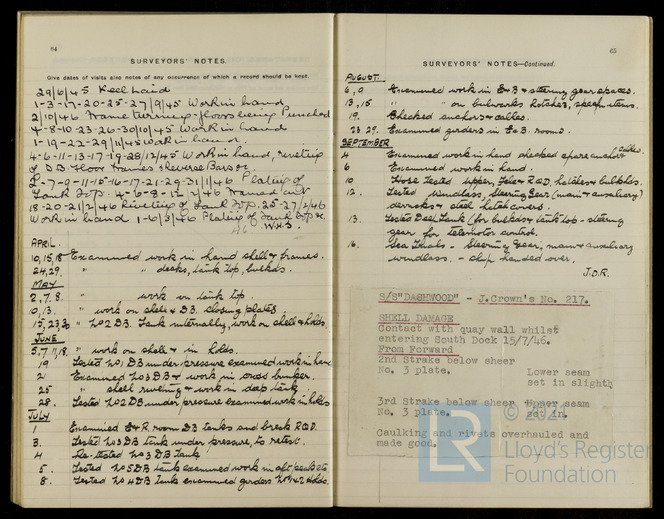 64
SURVEYORS' NOTES.
Give dates of visits also notes of any occurrence of which a record should be kept.
29/6/45 Keel Laid
1-3-17-20-25-27/9/45 Work in hand
2/10/45 Frame turning - floors being Punched
4-8-10-23-26-30/10/45 Work in hand
1-19-22-29/11/45 Work in hand.
4-6-11-13-17-19-28/12/45 Work in hand, riveting
of D.B. Floor Frames & Reverse Bars &c.
2-7-9-11-15-16-17-21-29-31/1/46 Plating of
Tank Top. 4-6-8-12-/46 Framed
18-20-21/2/46 Riveting of Tank Top. 25-27/2/46
Work in hand 1-6/3/46 Plating of Tank Top &c.
46 W.H.S.
APRIL.
10,15,18 Examined work in hand shell & frames.
24,29. " " decks, tank top, bulkds.
MAY
2,7,8. " work on tank top.
10,13. " work on shell & D.B. closing plates
15,23,30 " No 2 D.B. Tank internally, work on shell & holds.
JUNE
5,7,11,18. " work on shell & in holds.
19 Tested No 1 D.B. under pressure examined work in hand
21 Examined No 3 D.B. & work in cross bunker.
25 " shell riveting & work in deep tank
28. Tested No 2 D.B. under pressure examined work in holds
JULY
1 Examined E & R. room D.B tanks and break R.Q.D.
3. Tested No 3 D.B tank under pressure, to retest.
4 Re-tested No 3 D.B Tank
5. Tested No 5 D.B tank examined work in aft peak etc
8. Tested No 4 D.B tank examined girders No 1 & 2 Holds.
65
SURVEYORS' NOTES—Continued.
AUGUST.
6,9 Examined work in E & B & steering gear spaces.
13,15 " " on bulwarks hatches, spec items.
19. Checked anchors & cables.
23 29. Examined girders in E & B. rooms.
SEPTEMBER
4 Examined work in hand checked spare anchor & cables.
6 Examined work in hand.
10 Hose Tested Upper, & R.Q.D. hatches & bulkhds.
12. Tested windlass, Steering Gear (main & auxiliary)
derricks & steel hatch covers.
13. Tested Deep Tank (for bulkds & tank top - steering
gear for telemotor control.
16. Sea Trials - Steering Gear, main & auxiliary
windlass. - ship handed over.
J.D.R.
S/S "DASHWOOD" - J.Crown's No. 217.
SHELL DAMAGE
Contact with quay wall whilst
entering South Dock 15/7/46.
From Forward
2nd Strake below sheer
No. 3 plate. Lower seam
set in slightly
3rd Strake below sheer Upper seam
No. 3 plate. set in.
Caulking and rivets overhauled and
made good.
LR
© 2021
Lloyd's Register
Foundation